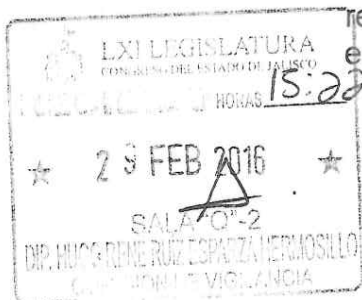 re
LXI LEGISLATURA
e
CONGRESO DEL ESTADO DE JALISCO
HORAS 15:22
FEB 2016
SALA "O"-2
DIP. HUGO RENE RUIZ ESPARZA HERMOSILLO
VIGILANCIA